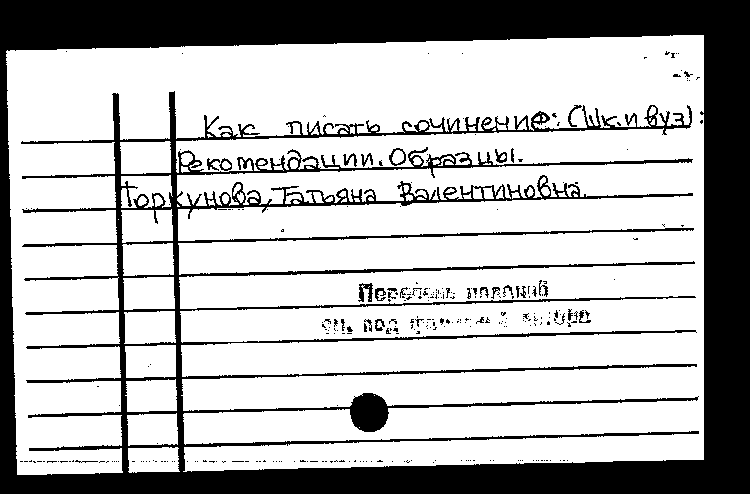 Как писать сочинение: (Шк. и вуз):
Рекомендации. Образцы.
Торкунова, Татьяна Валентиновна.
Перечень изданий
см. под фамилией автора